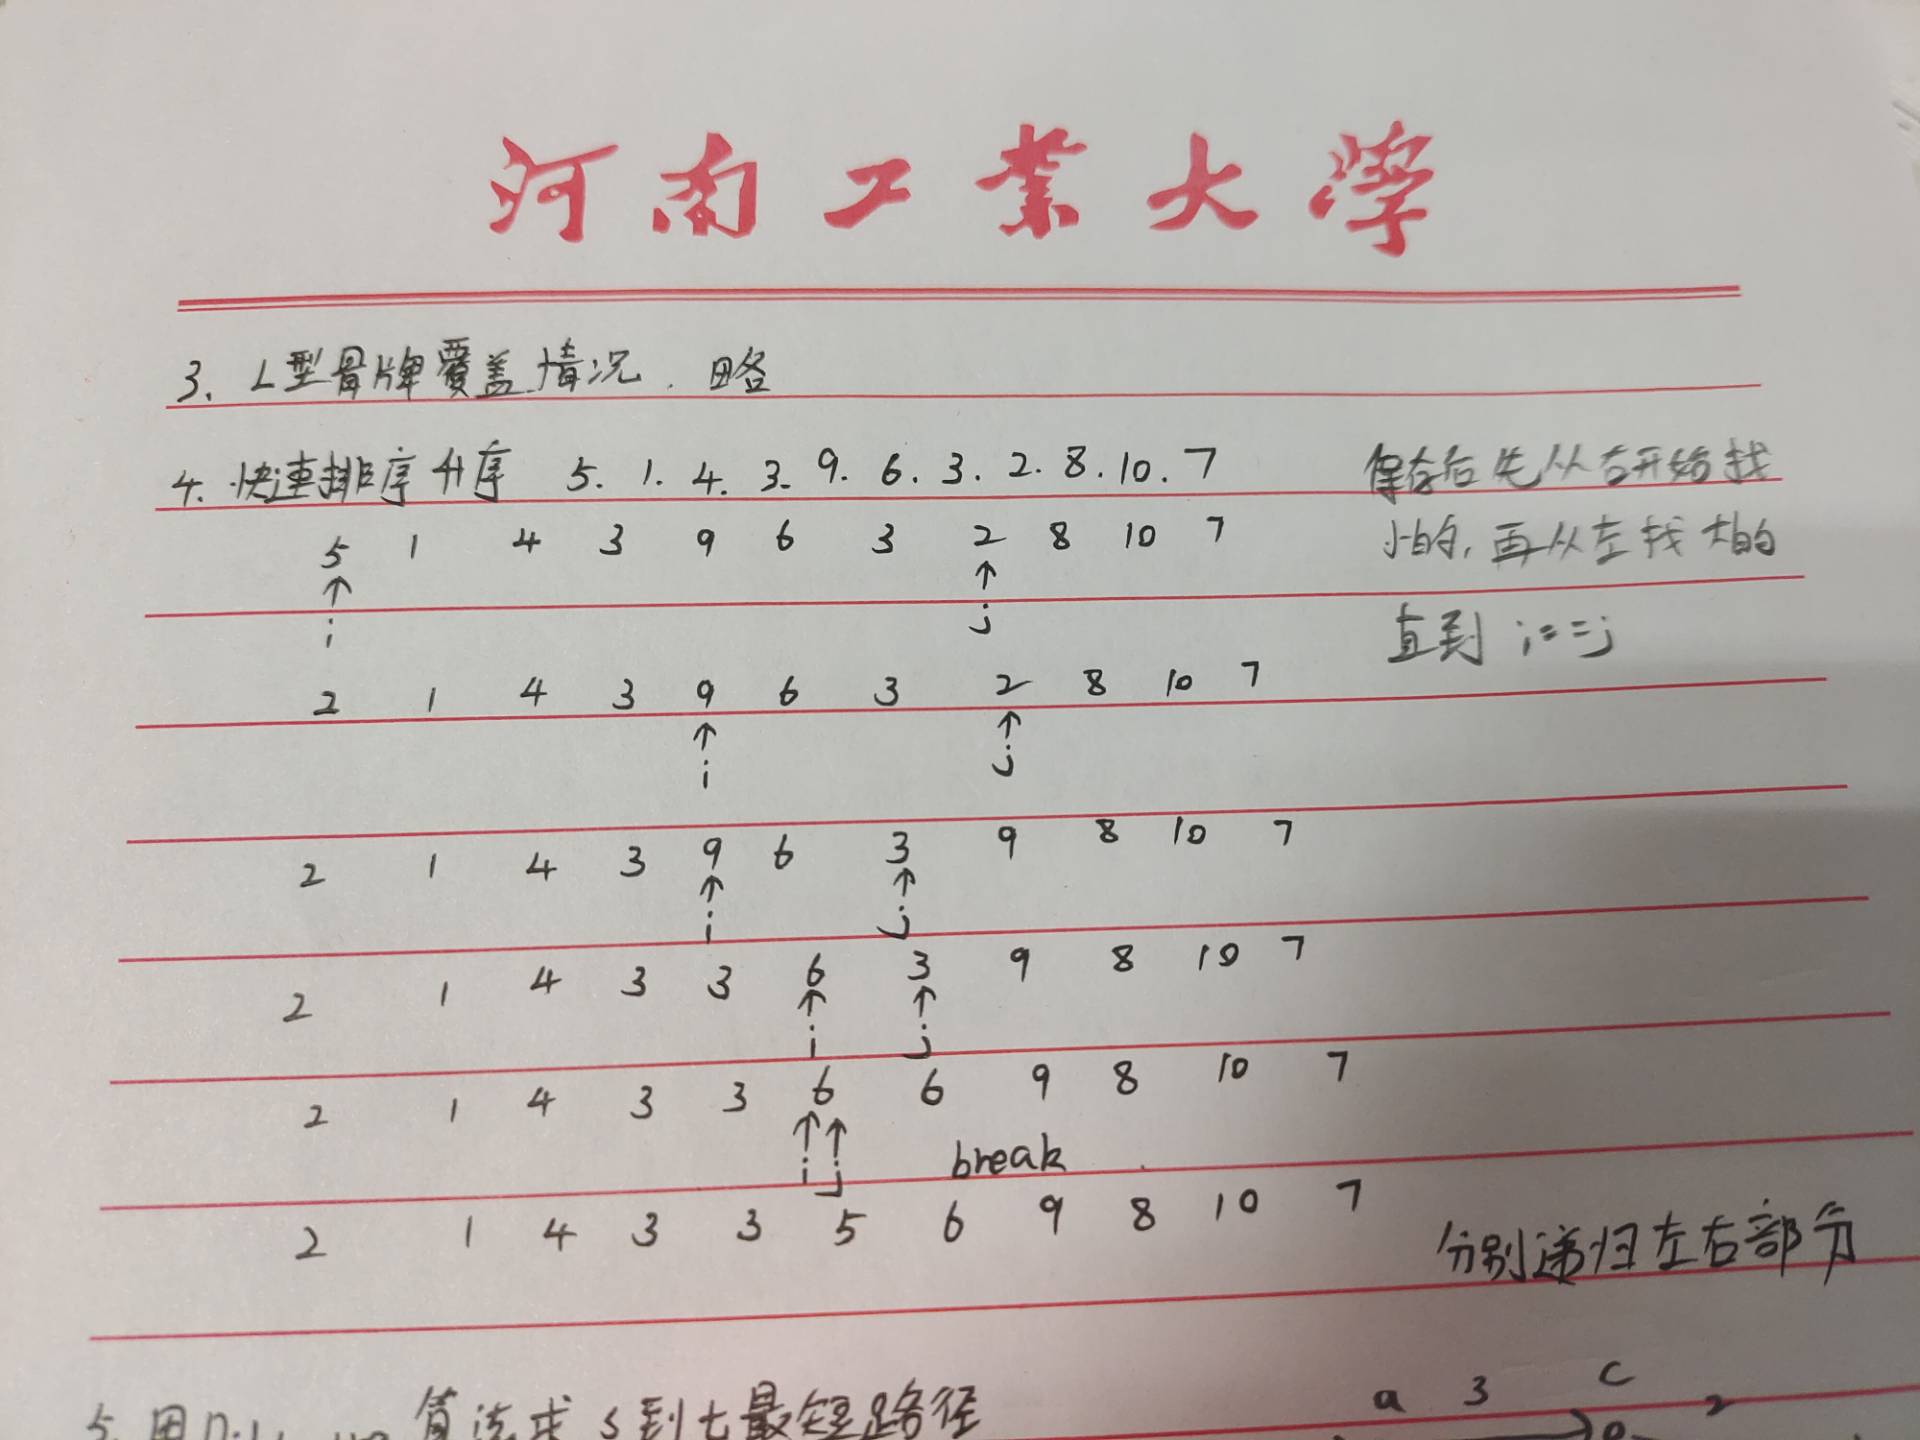 河南工业大学
3. L型骨牌覆盖情况. 略
4. 快速排序 升序 5. 1. 4. 3. 9. 6. 3. 2. 8. 10. 7
保存后先从右开始找
5 1 4 3 9 6 3 2 8 10 7
小的,再从左找大的
↑ ↑
i j
直到 i==j
2 1 4 3 9 6 3 2 8 10 7
↑ ↑
i j
2 1 4 3 9 6 3 9 8 10 7
↑ ↑
i j
2 1 4 3 3 6 3 9 8 10 7
↑ ↑
i j
2 1 4 3 3 6 6 9 8 10 7
↑↑
i j break
2 1 4 3 3 5 6 9 8 10 7
分别递归左右部分
5. 用 算法求 s到t最短路径
a 3 c
2